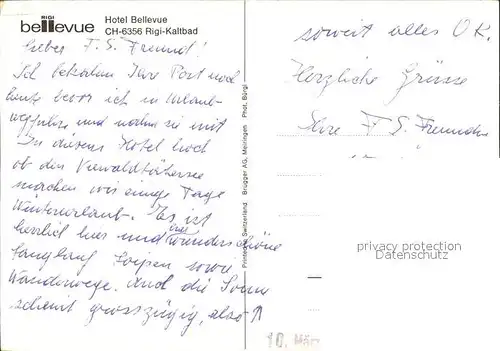 RIGI
bellevue
Hotel Bellevue
CH-6356 Rigi-Kaltbad
Lieber F. S. Freund!
Ich bekam Ihre Post noch
heute bevor ich in Urlaub
wegfuhr und nahm sie mit
In diesem Hotel hoch
ob den Vierwaldstättersee
machen wir einige Tage
Winterurlaub. Es ist
herrlich hier und hat wunderschöne
Langlauf Loipen sowie
Wanderwege. Und die Sonne
scheint grosszügig, also ↑
soweit alles O.K.
Herzliche Grüsse
Ihre F. S. Freundin
Printed in Switzerland Brügger AG, Meiringen Phot. Bürgi
privacy protection
Datenschutz
10. März